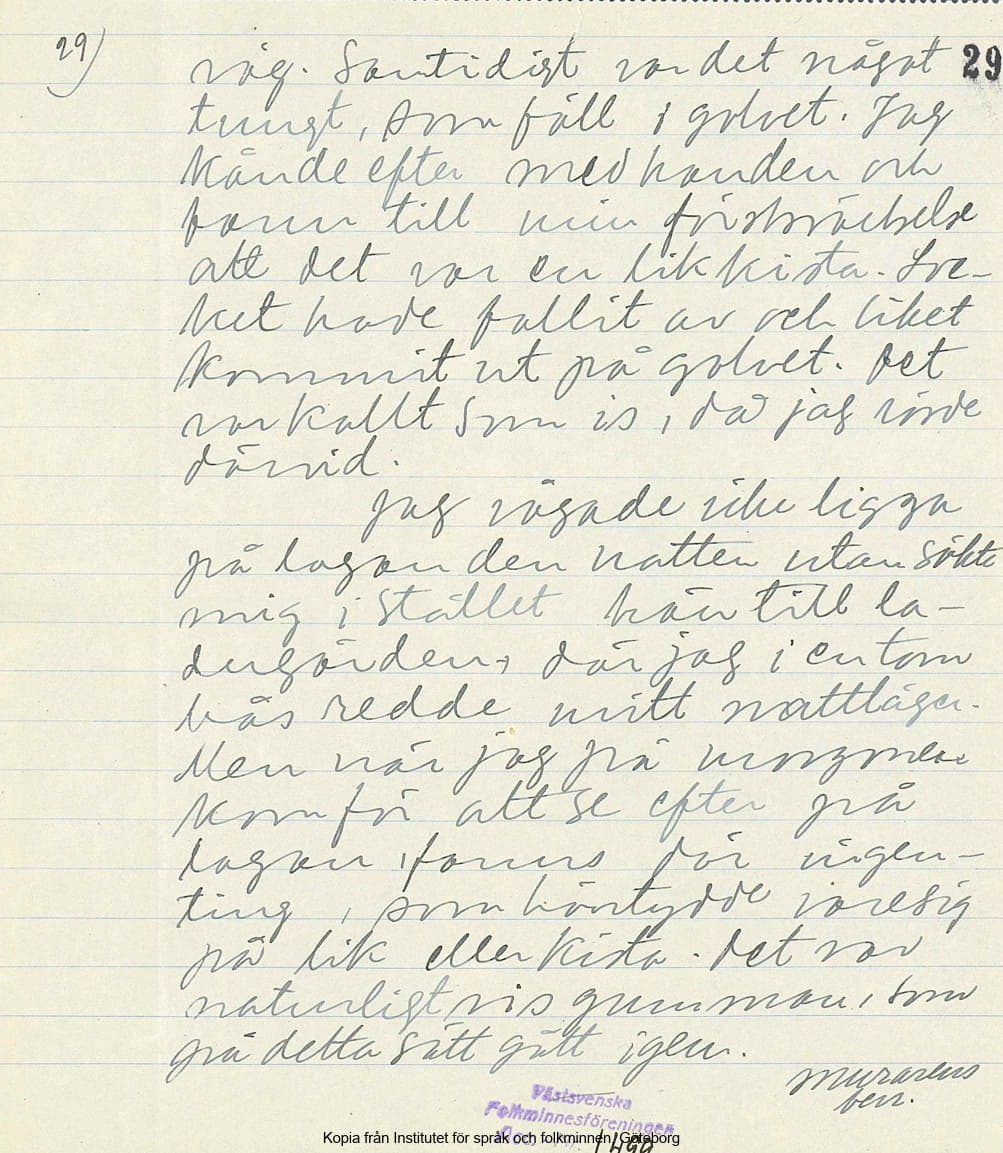 29)
29
väg. Samtidigt var det något
tungt, som föll i golvet. Jag
kände efter med handen och
fann till min förskräckelse
att det var en likkista. Loc-
ket hade fallit av och liket
kommit ut på golvet. Det
var kallt som is, då jag rörde
därvid.
Jag vågade icke ligga
på logan den natten utan sökte
mig i stället hän till la-
dugården, där jag i en tom
bås redde mitt nattläger.
Men när jag på morgonen
kom för att se efter på
logan, fanns där ingen-
ting, som häntydde varesig
på lik eller kista. Det var
naturligtvis gumman, som
på detta sätt gått igen.
Murarens
ber.
Västsvenska
Folkminnesföreningen
1499
Kopia från Institutet för språk och folkminnen, Göteborg